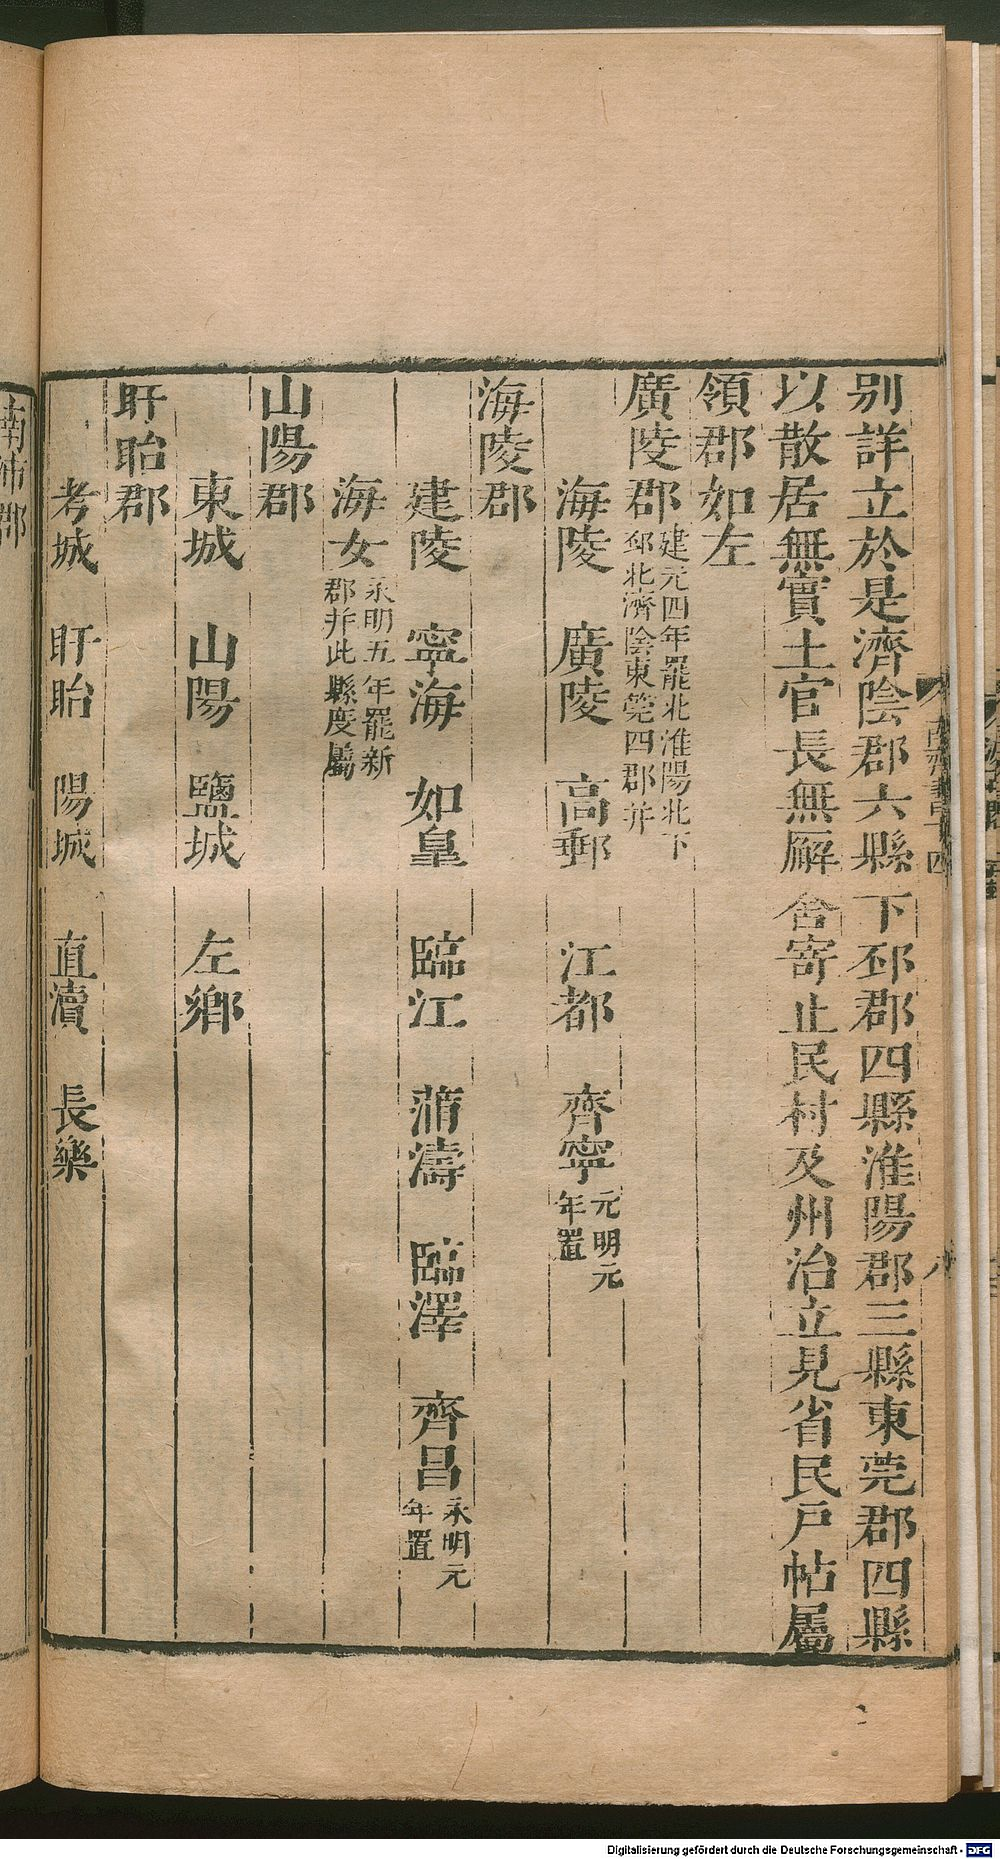 别詳立於是濟陰郡六縣下邳郡四縣淮陽郡三縣東莞郡四縣
以散居無實土官長無廨舍寄止民村及州治立見省民戸帖屬
領郡如左
廣陵郡建元四年罷北淮陽北下邳北濟陰東莞四郡并
海陵 廣陵 高郵 江都 齊寧元明元年置
海陵郡
建陵 寧海 如皇 臨江 蒲濤 臨澤 齊昌永明元年置
海女永明五年罷新郡并此縣度屬
山陽郡
東城 山陽 鹽城 左鄉
盱眙郡
考城 盱眙 陽城 直瀆 長樂
南沛郡
Digitalisierung gefördert durch die Deutsche Forschungsgemeinschaft - DFG